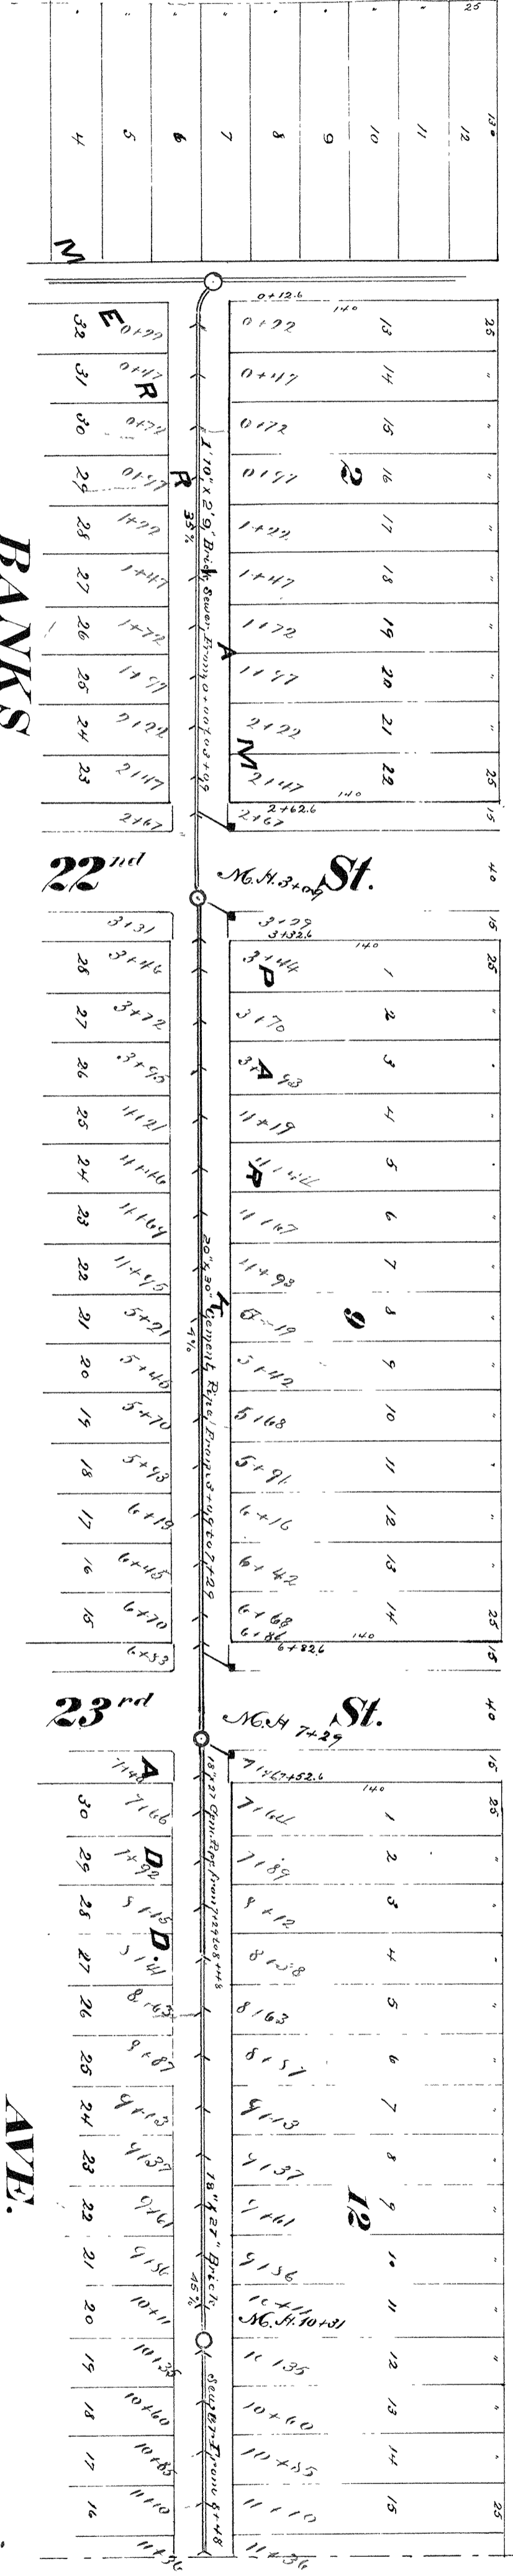 25
13°
4 5 6 7 8 9 10 11 12
MERRAM PARK ADD.
0+12.6
140
25
32 0+22 0+22 13
31 0+47 0+47 14
30 0+72 0+72 15
29 0+97 0+97 16
2
28 1+22 1+22 17
27 1+47 1+47 18
26 1+72 1+72 19
25 1+97 1+97 20
24 2+22 2+22 21
23 2+47 2+47 22 25
1'10" x 2'9" Brick Sewer From 0+00 to 3+09
.35%
140
2+62.6
2+67 2+67 15
BANKS
22nd St.
40
M.H. 3+09
3+31 3+29 15
3+32.6
140
28 3+46 3+44 1 25
27 3+72 3+70 2
26 3+95 3+93 3
25 4+21 4+19 4
24 4+46 4+44 5
23 4+69 4+67 6
22 4+95 4+93 7
21 5+21 5+19 8
9
20 5+45 5+42 9
19 5+70 5+68 10
18 5+93 5+91 11
17 6+19 6+16 12
16 6+45 6+42 13
15 6+70 6+68 14 25
20" x 30" Cement Pipe From 3+09 to 7+29
.4%
6+86
140
6+82.6
6+83 15
23rd St.
40
M.H 7+29
7+48 7+52.6 15
140
30 7+66 7+64 1 25
29 7+92 7+89 2
28 8+15 8+12 3
27 8+41 8+38 4
26 8+63 8+63 5
25 8+87 8+87 6
24 9+13 9+13 7
23 9+37 9+37 8
22 9+61 9+61 9
12
21 9+86 9+86 10
20 10+11 10+11 11
M.H. 10+31
19 10+35 10+35 12
18 10+60 10+60 13
17 10+85 10+85 14
16 11+10 11+10 15 25
11+36 11+36
18" x 27" Cem. Pipe from 7+29 to 8+48
18" x 27" Brick Sewer From 8+48
.45%
AVE.